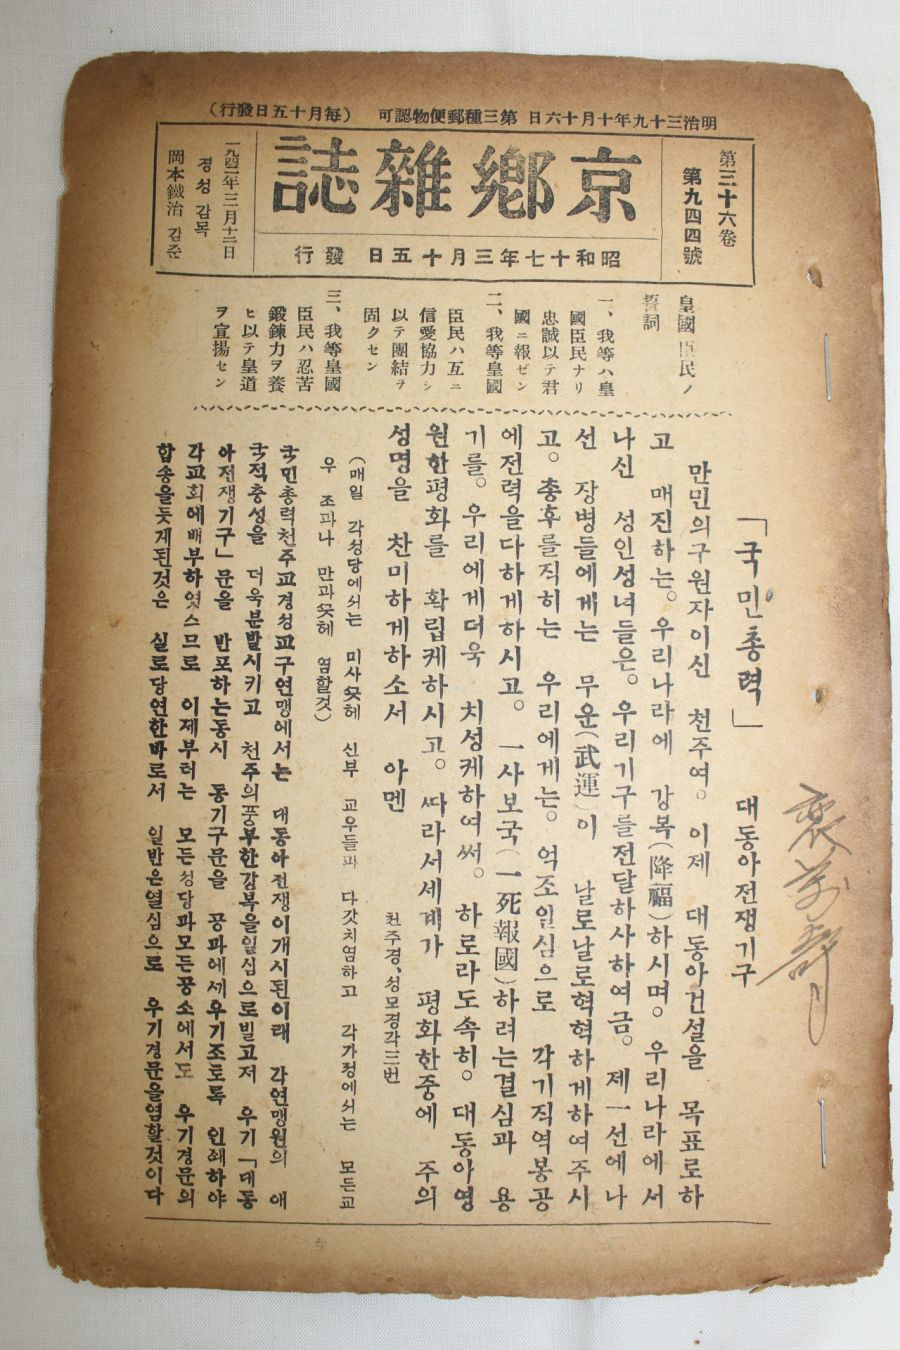 明治三十九年十月十六日 第三種郵便物認可 (每月十五日發行)
第三十六卷
第九四四號
京鄕雜誌
昭和十七年三月十五日 發行
一九四二年三月十二日
경성 감목
岡本鐵治 감준
皇國臣民ノ
誓詞
一、我等ハ皇
國臣民ナリ
忠誠以テ君
國ニ報ゼン
二、我等皇國
臣民ハ互ニ
信愛協力シ
以テ團結ヲ
固クセン
三、我等皇國
臣民ハ忍苦
鍛鍊力ヲ養
ヒ以テ皇道
ヲ宣揚セン
「국민총력」 대동아전쟁기구
만민의구원자이신 천주여。이제 대동아건설을 목표로하
고 매진하는。우리나라에 강복(降福)하시며。우리나라에서
나신 성인성녀들은。우리기구를전달하사하여금。제一선에나
선 장병들에게는 무운(武運)이 날로날로혁혁하게하여주시
고。총후를직히는 우리에게는。억조일심으로 각기직역봉공
에전력을다하게하시고。一사보국(一死報國)하려는결심과 용
기를。우리에게더욱 치성케하여써。하로라도속히。대동아영
원한평화를 확립케하시고。따라서세계가 평화한중에 주의
성명을 찬미하게하소서 아멘
천주경、성모경각三번
(매일 각성당에서는 미사끗헤 신부 교우들과 다갓치염하고 각가정에서는 모든교
우 조과나 만과끗헤 염할것)
국민총력천주교경성교구연맹에서는 대동아전쟁이개시된이래 각연맹원의 애
국적충성을 더욱분발시키고 천주의풍부한강복을일심으로빌고저 우기「대동
아전쟁기구」문을 반포하는동시 동기구문을 공과에세우기조토록 인쇄하야
각교회에배부하엿스므로 이제부터는 모든성당과모든공소에서도 우기경문의
합송을듯게된것은 실로당연한바로서 일반은열심으로 우기경문을염할것이다